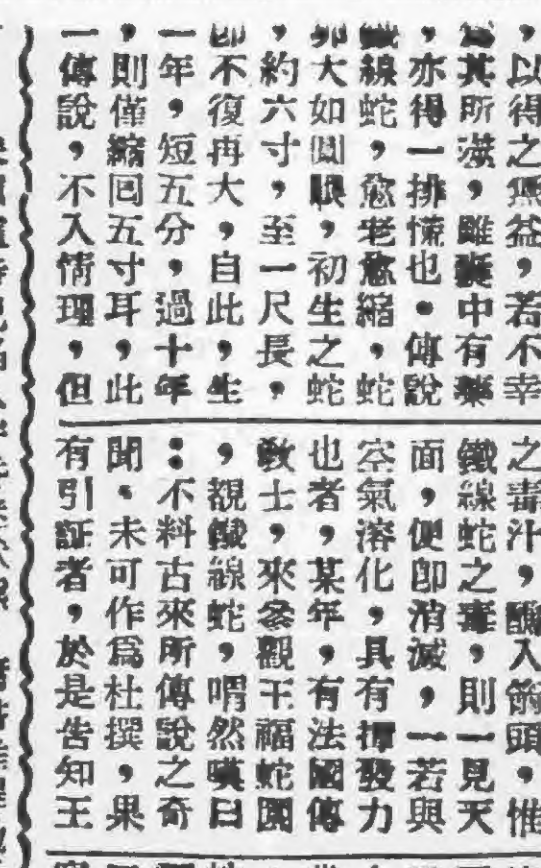 ，以得之無益，若不幸
爲其所滋，雖囊中有藥
，亦得一排懷也。傳說
鐵線蛇，愈老愈縮，蛇
卵大如圓眼，初生之蛇
，約六寸，至一尺長，
即不復再大，自此，生
一年，短五分，過十年
，則僅縮回五寸耳，此
一傳說，不入情理，但
之毒汁，釀入箭頭，惟
鐵線蛇之毒，則一見天
面，便即消滅，一若與
空氣溶化，具有揮發力
也者，某年，有法國傳
敎士，來參觀王福蛇園
，覩鐵線蛇，喟然嘆曰
：不料古來所傳說之奇
聞，未可作爲杜撰，果
有引証者，於是告知王